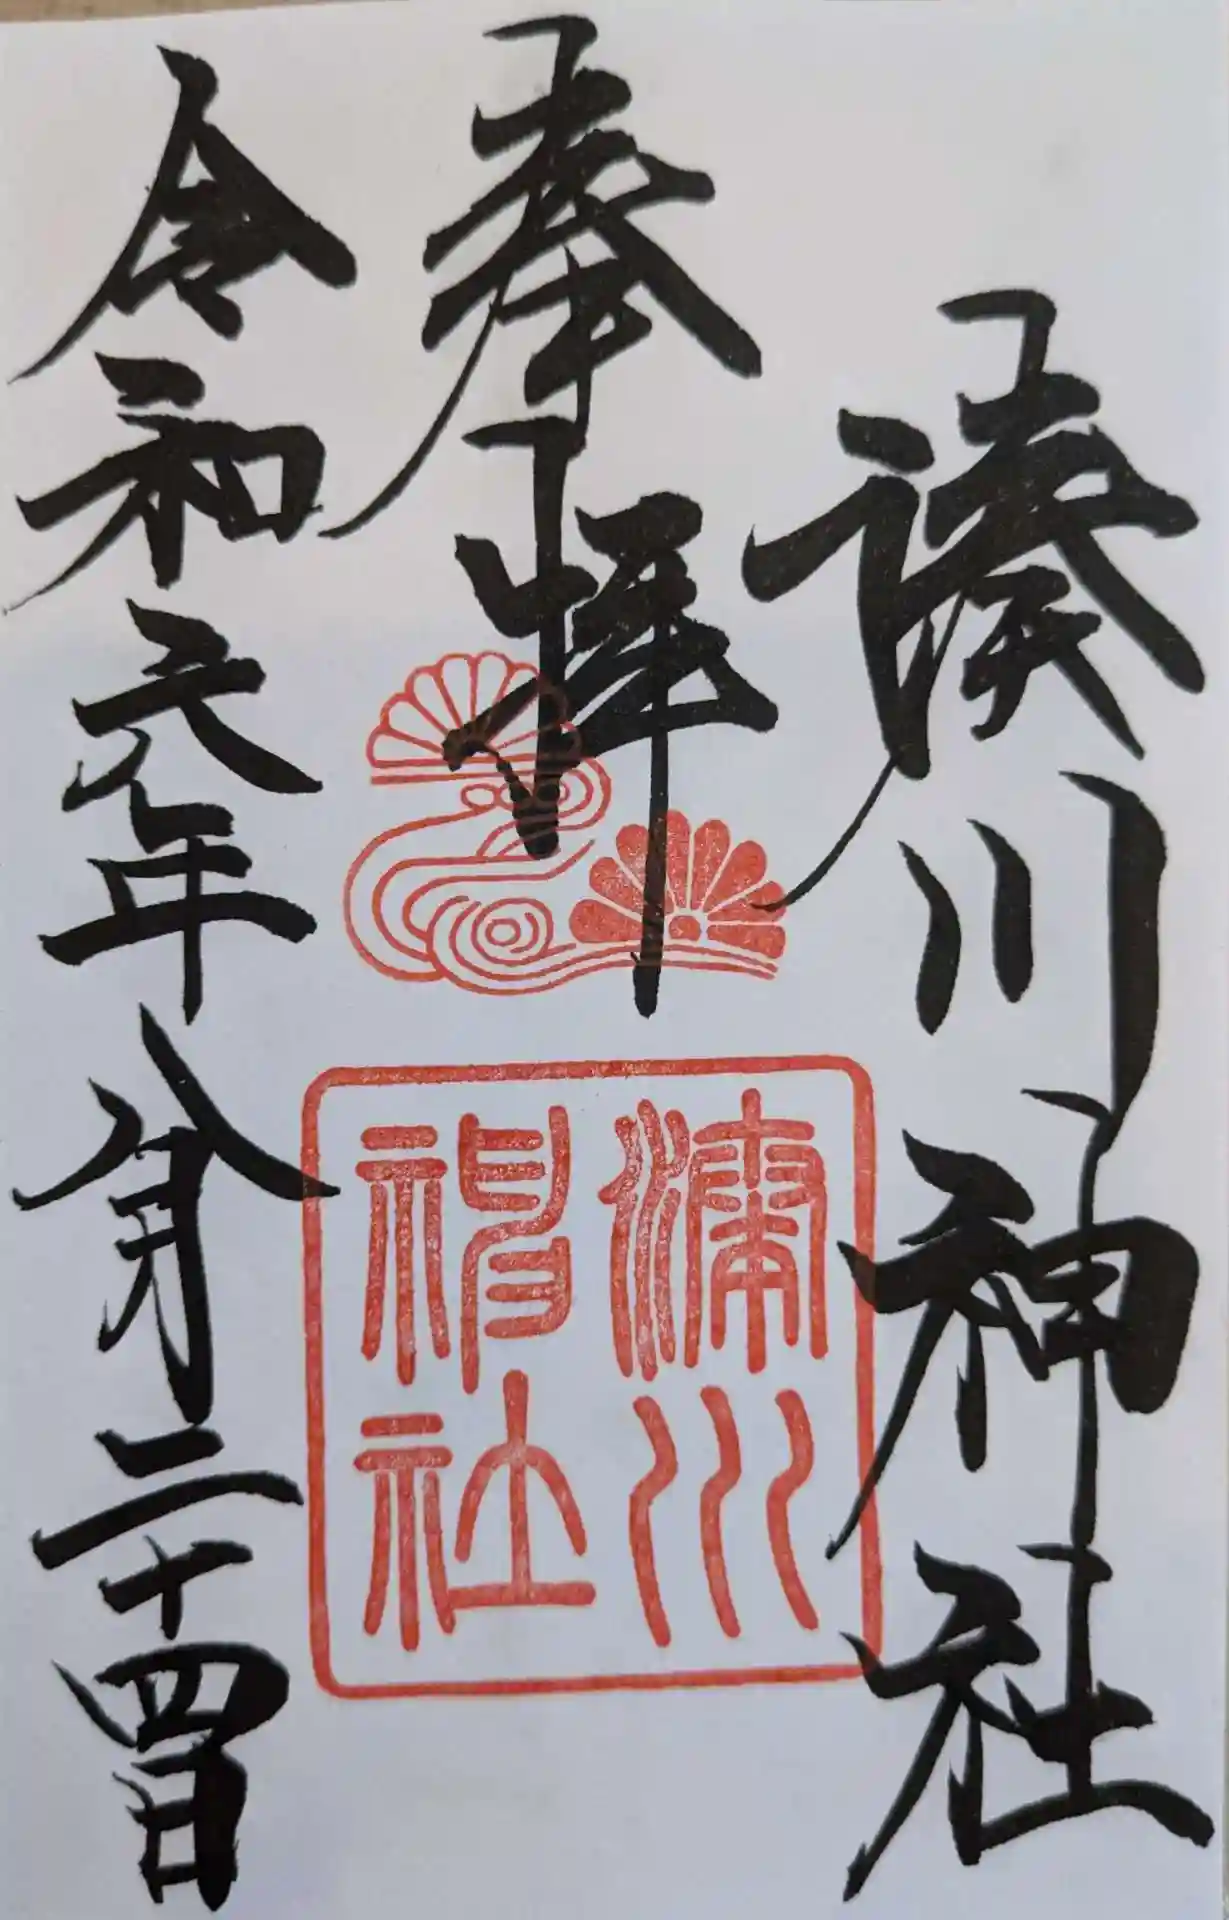 湊川神社
奉拝
湊川
神社
令和六年八月二十四日